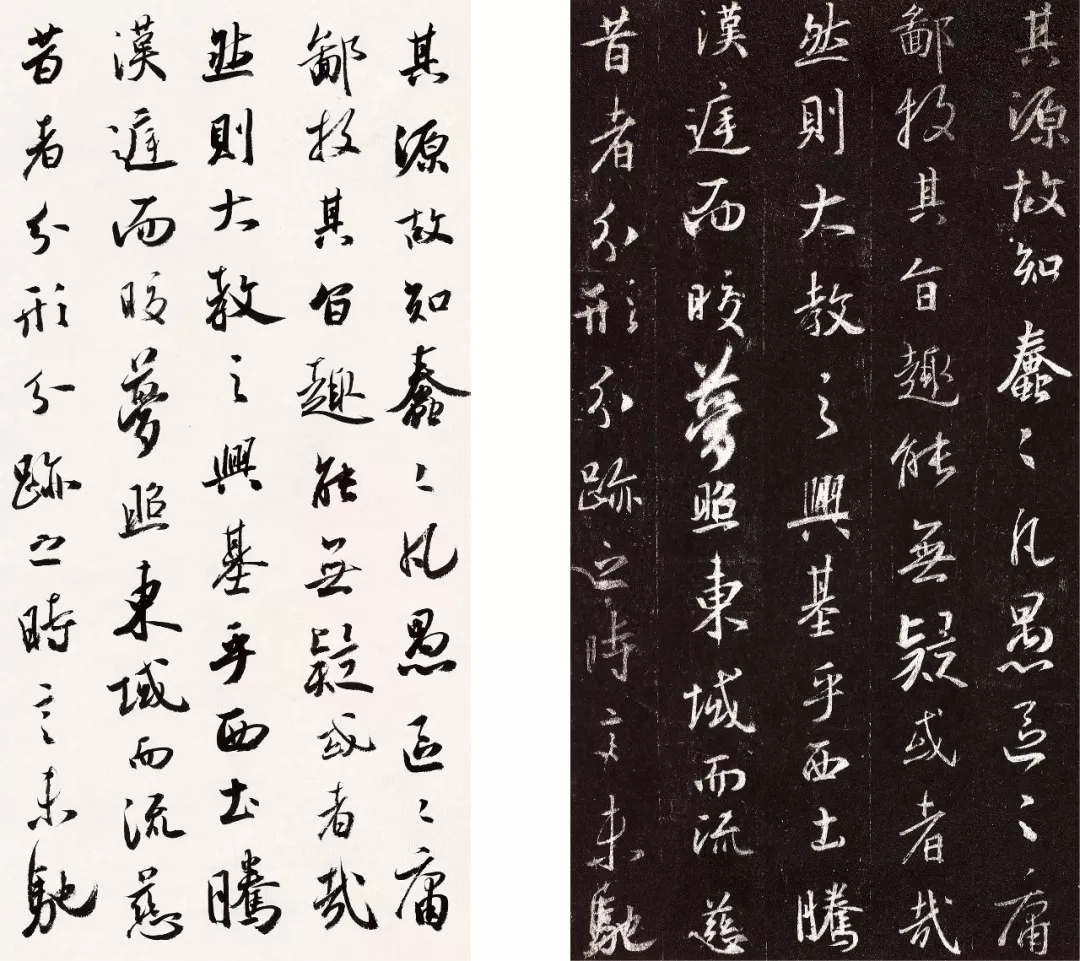 其源故知蠢〻凡愚區〻庸
鄙投其旨趣能無疑或者哉
然則大教之興基乎西土騰
漢庭而皎夢照東域而流慈
昔者分形分跡之時言未馳
其源故知蠢〻凡愚區〻庸
鄙投其旨趣能無疑或者哉
然則大教之興基乎西土騰
漢庭而皎夢照東域而流慈
昔者分形分跡之時言未馳